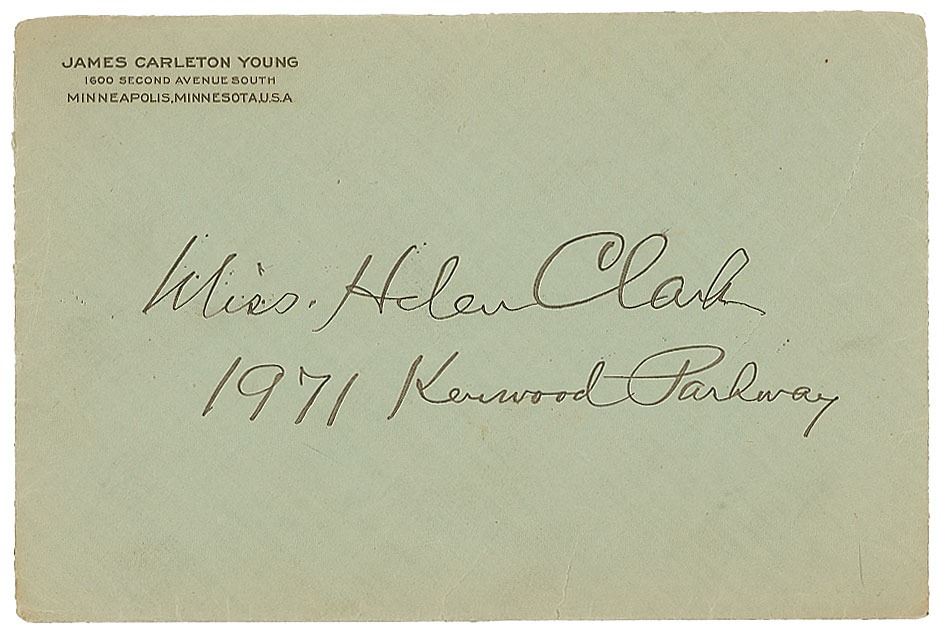 JAMES CARLETON YOUNG
1600 SECOND AVENUE SOUTH
MINNEAPOLIS, MINNESOTA, U.S.A
Miss. Helen Clark
1971 Kenwood Parkway